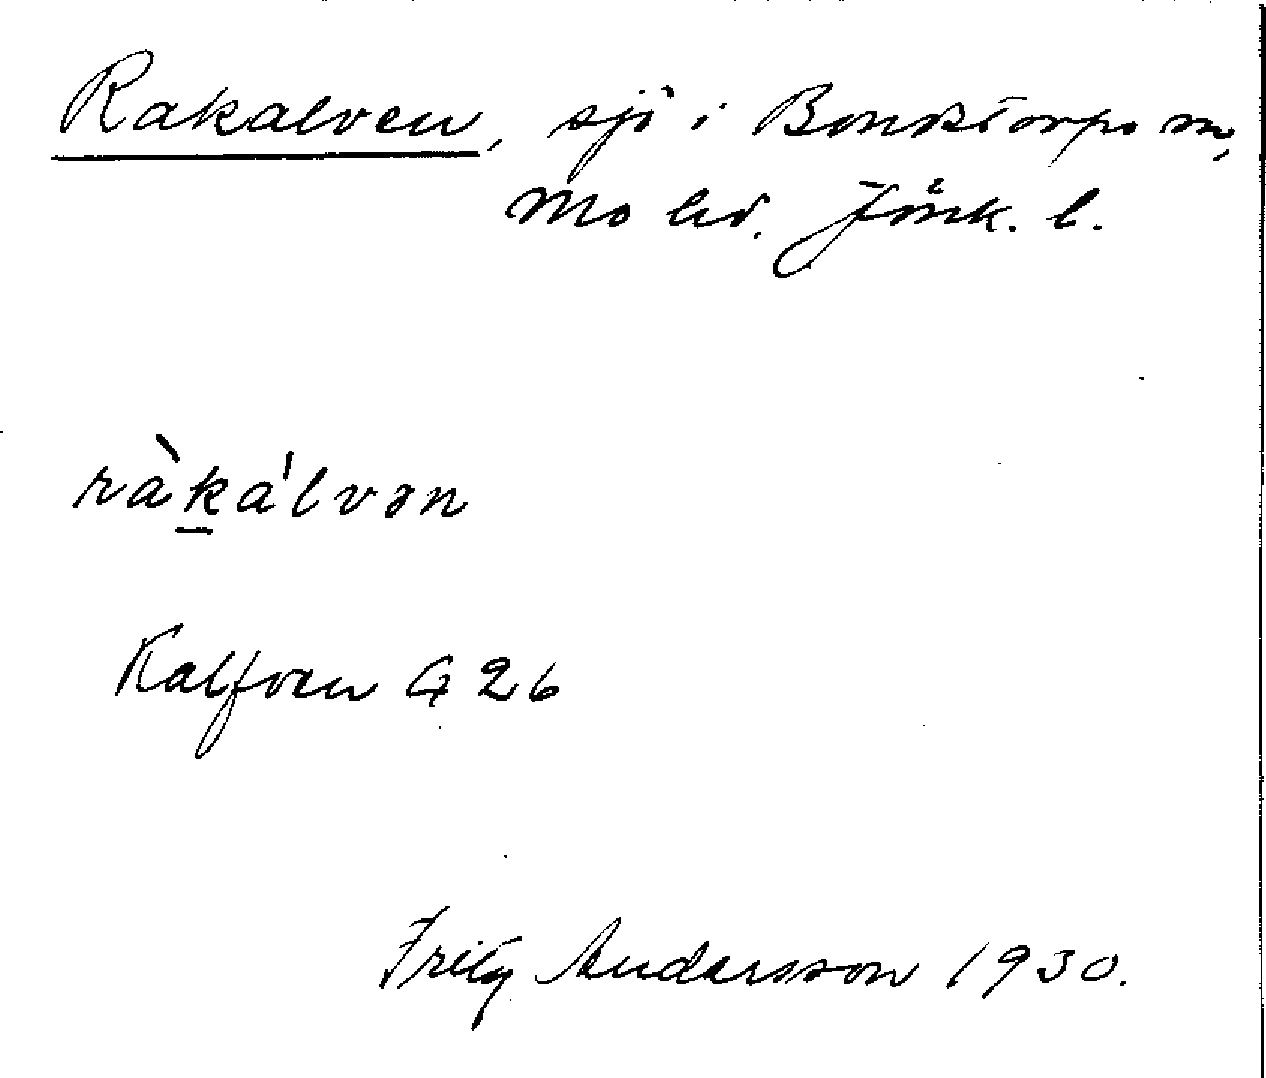 Rakalven, sjö i Bonstorps sn,
Mo hd. Jönk. l.
ràkálvən
Kalfven G 26
Fritz Andersson 1930.